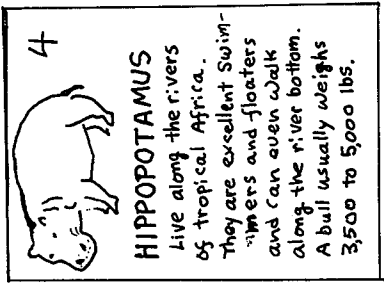 4
HIPPOPOTAMUS
Live along the rivers
of tropical Africa.
They are excellent swim-
mers and floaters
and can even walk
along the river bottom.
A bull usually weighs
3,500 to 5,000 lbs.